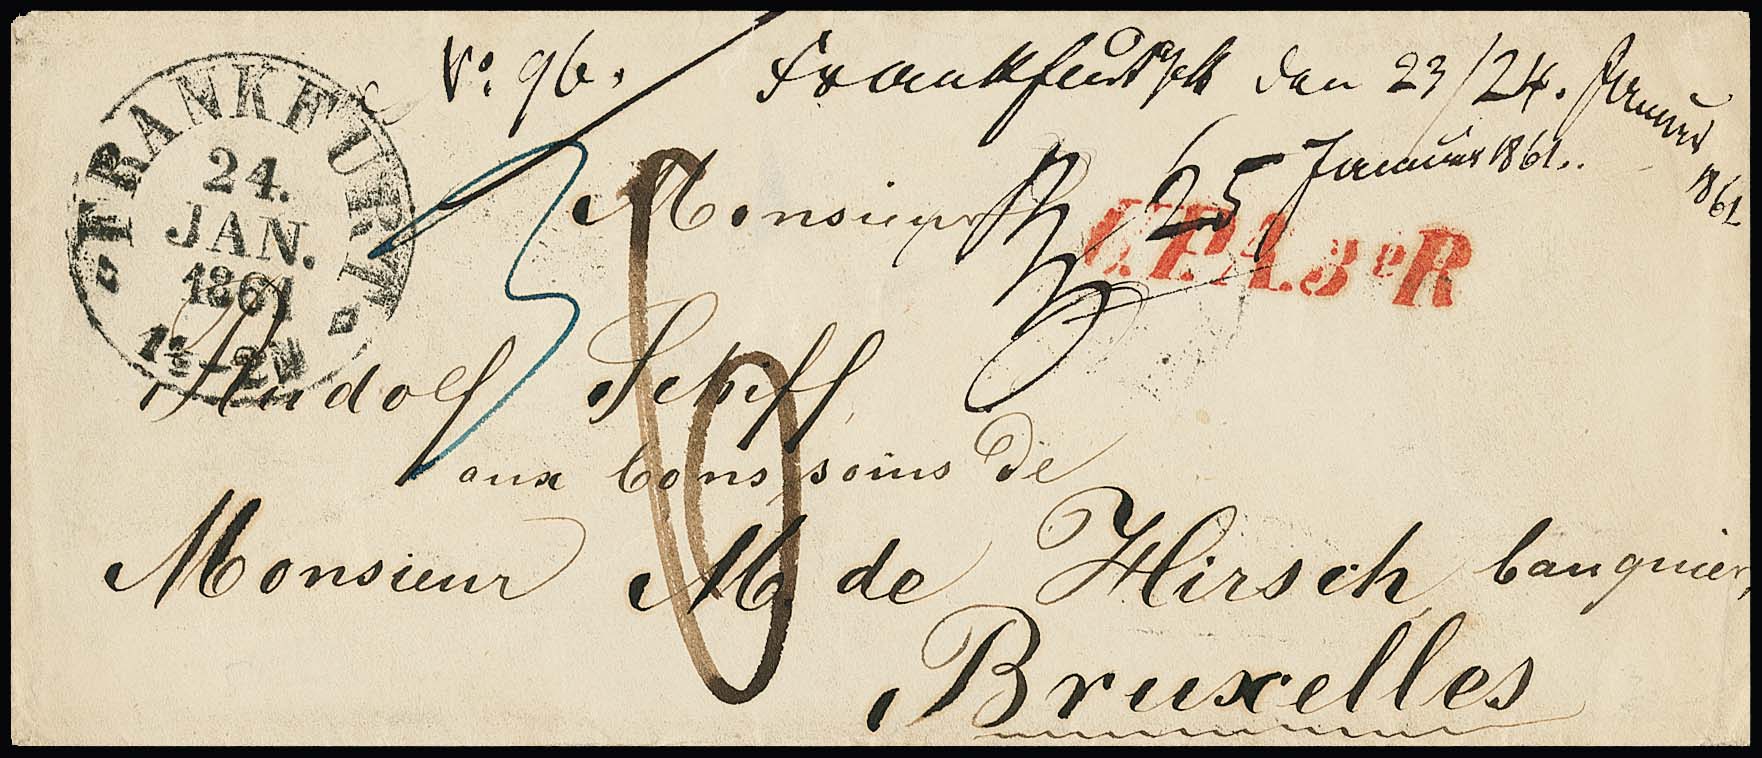 No. 96. Frankfurt den 23/24. Januar 1861
25 Januar 1861.
FRANKFURT
24.
JAN.
1861
1½-2N
U.P.A.3eR
3
6
Monsieur
Rudolf Schiff
aux bons soins de
Monsieur M de Hirsch, banquier,
Bruxelles